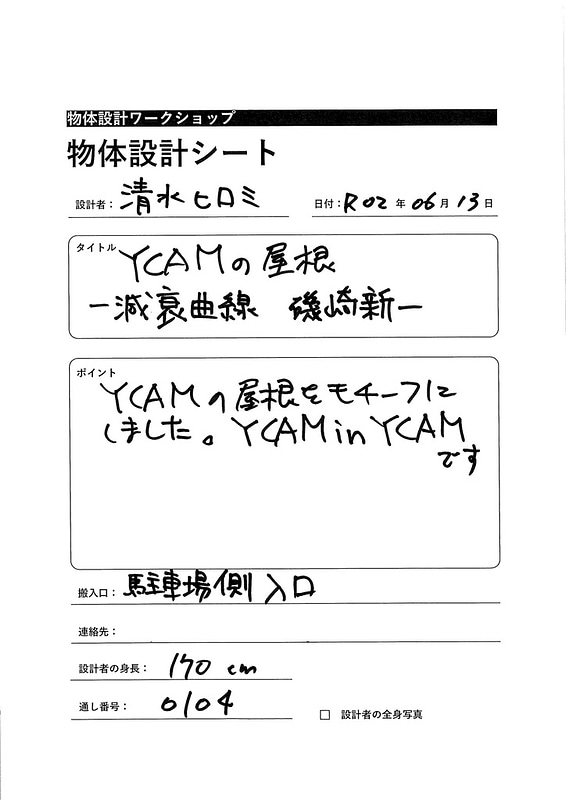 物体設計ワークショップ
物体設計シート
設計者：清水ヒロミ 日付：R02年06月13日
タイトル
YCAMの屋根
ー減衰曲線 磯崎新ー
ポイント
YCAMの屋根をモチーフに
しました。YCAM in YCAM
です
搬入口：駐車場側入口
連絡先：
設計者の身長：170 cm
通し番号：0104
□ 設計者の全身写真